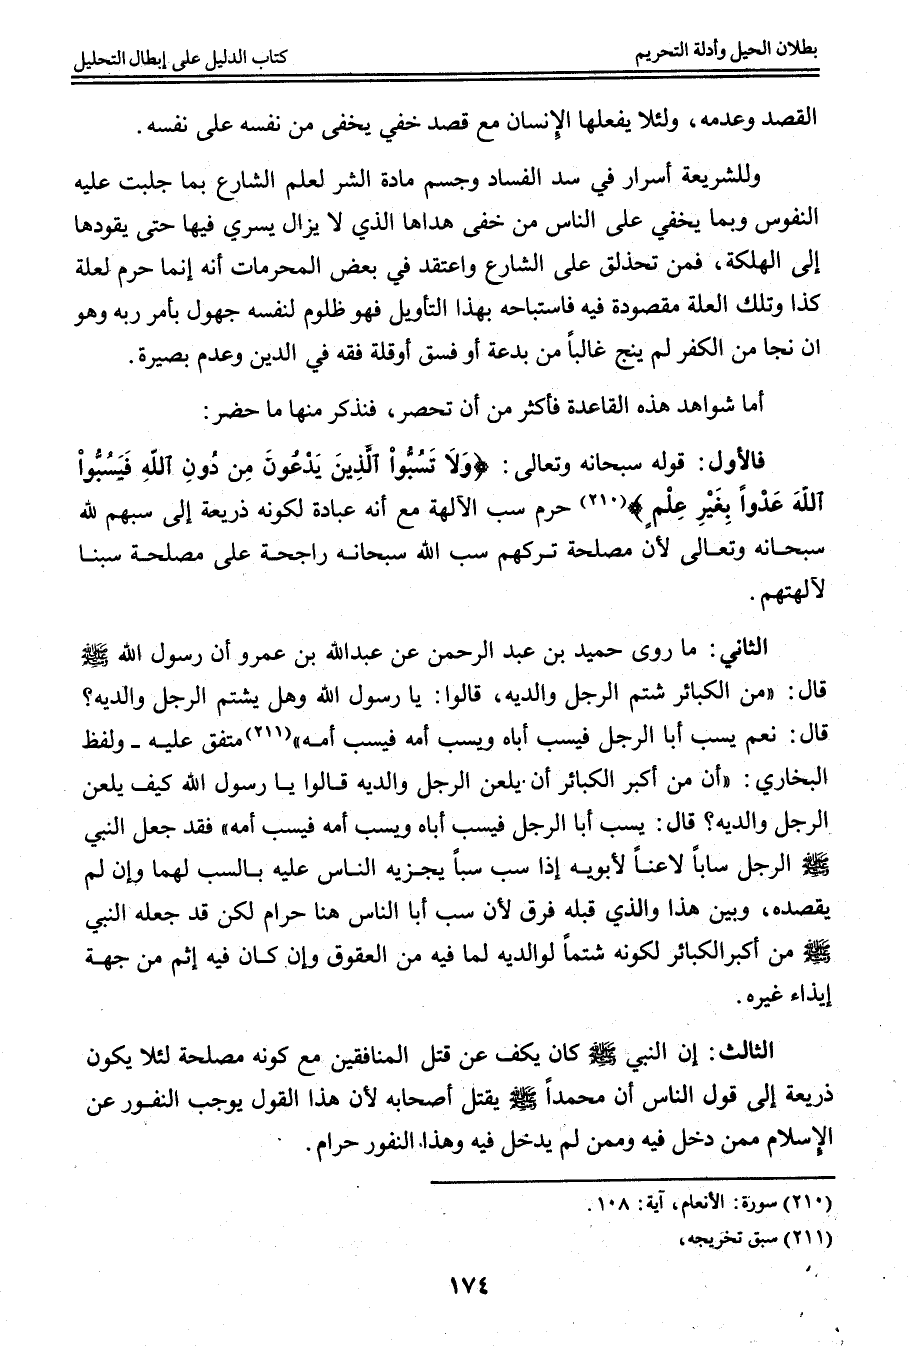 بطلان الحيل وأدلة التحريم
كتاب الدليل على إبطال التحليل
القصد وعدمه، ولئلا يفعلها الإنسان مع قصد خفي يخفى من نفسه على نفسه.
وللشريعة أسرار في سد الفساد وجسم مادة الشر لعلم الشارع بما جلبت عليه
النفوس وبما يخفي على الناس من خفى هداها الذي لا يزال يسري فيها حتى يقودها
إلى الهلكة، فمن تحذلق على الشارع واعتقد في بعض المحرمات أنه إنما حرم لعلة
كذا وتلك العلة مقصودة فيه فاستباحه بهذا التأويل فهو ظلوم لنفسه جهول بأمر ربه وهو
ان نجا من الكفر لم ينج غالباً من بدعة أو فسق أوقلة فقه في الدين وعدم بصيرة.
أما شواهد هذه القاعدة فأكثر من أن تحصر، فنذكر منها ما حضر:
فالأول: قوله سبحانه وتعالى: ﴿وَلَا تَسُبُّواْ ٱلَّذِينَ يَدْعُونَ مِن دُونِ ٱللَّهِ فَيَسُبُّواْ
ٱللَّهَ عَدْواً بِغَيْرِ عِلْمٍ﴾(٢١٠) حرم سب الآلهة مع أنه عبادة لكونه ذريعة إلى سبهم لله
سبحانه وتعالى لأن مصلحة تركهم سب الله سبحانه راجحة على مصلحة سبنا
لآلهتهم.
الثاني: ما روى حميد بن عبد الرحمن عن عبدالله بن عمرو أن رسول الله ﷺ
قال: «من الكبائر شتم الرجل والديه، قالوا: يا رسول الله وهل يشتم الرجل والديه؟
قال: نعم يسب أبا الرجل فيسب أباه ويسب أمه فيسب أمه»(٢١١) متفق عليه ـ ولفظ
البخاري: «أن من أكبر الكبائر أن يلعن الرجل والديه قالوا يا رسول الله كيف يلعن
الرجل والديه؟ قال: يسب أبا الرجل فيسب أباه ويسب أمه فيسب أمه» فقد جعل النبي
ﷺ الرجل ساباً لاعناً لأبويه إذا سب سباً يجزيه الناس عليه بالسب لهما وإن لم
يقصده، وبين هذا والذي قبله فرق لأن سب أبا الناس هنا حرام لكن قد جعله النبي
ﷺ من أكبرالكبائر لكونه شتماً لوالديه لما فيه من العقوق وإن كان فيه إثم من جهة
إيذاء غيره.
الثالث: إن النبي ﷺ كان يكف عن قتل المنافقين مع كونه مصلحة لئلا يكون
ذريعة إلى قول الناس أن محمداً ﷺ يقتل أصحابه لأن هذا القول يوجب النفور عن
الإسلام ممن دخل فيه وممن لم يدخل فيه وهذا النفور حرام.
(٢١٠) سورة: الأنعام، آية: ١٠٨.
(٢١١) سبق تخريجه،
١٧٤